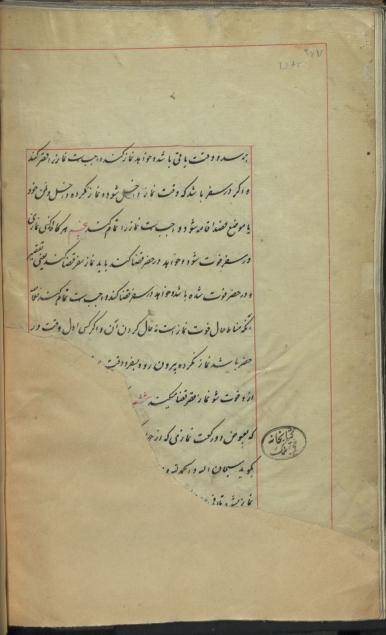 برسد و وقت باقی باشد و خواهد نماز کند واجبست نماز را قصر کند
و اگر در سفر باشد که وقت نماز داخل شود و نماز نکرده داخل وطن خود
یا موضع قصد اقامه شود واجبست نماز را تمام کند هر گاه کسی نمازی
در سفر فوت شود و خواهد در حضر قضا کند باید نماز سفر قضا کند یعنی قصر
و در حضر فوت شده باشد و خواهد در سفر قضا کند واجبست تمام کند
آنکه مناط حال فوت نماز است نه حال کردن آن و اگر کسی اول وقت در
حضر باشد نماز نکرده بیرون رود بسفر و وقت
از او فوت شود نماز قصر قضا میکند
که بعوض دو رکعت نمازی که از
بگوید سبحان الله و الحمد لله و
نماز
کتابخانه